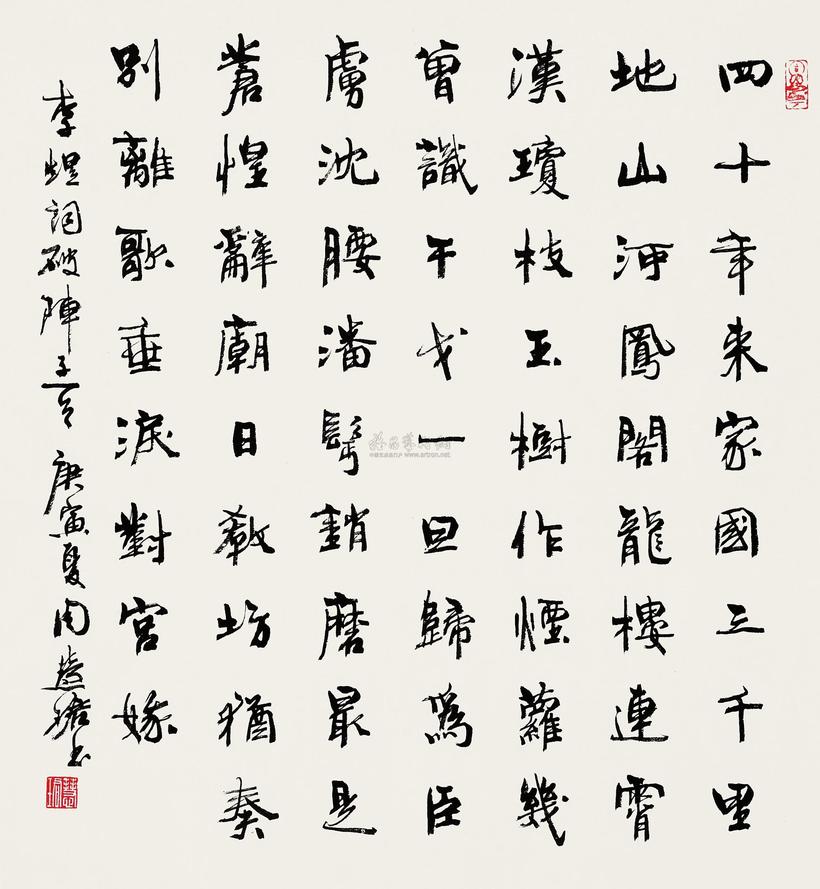 四十年来家國三千里
地山河鳳閣龍樓連霄
漢瓊枝玉樹作煙蘿幾
曾識干戈一旦歸爲臣
虜沈腰潘鬢銷磨最是
蒼惶辭廟日教坊猶奏
別離歌垂淚對宮娥
李煜詞破陣子一首 庚寅夏周慧珺书
www.artron.net